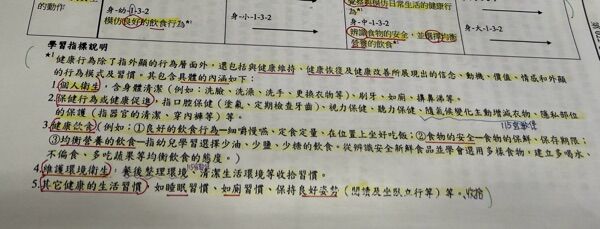 的動作
身-幼-1-3-2
模仿良好的飲食行為*¹
身-小-1-3-2
模仿日常生活的健康行為*¹
身-中-1-3-2
辨識食物的安全，並選擇均衡營養的飲食*¹
身-大-1-3-2
學習指標說明
*¹ 健康行為除了指外顯的行為層面外，還包括與健康維持、健康恢復及健康改善所展現出的信念、動機、價值、情感和外顯
的行為模式及習慣。其包含具體的內涵如下：
1.個人衛生，含身體清潔（例如：洗臉、洗澡、洗手、更換衣物等）、刷牙、如廁、擤鼻涕等。
2.保健行為或健康促進，指口腔保健（塗氟、定期檢查牙齒）、視力保健、聽力保健、隨氣候變化主動增減衣物、隱私部位
的保護（指器官的清潔、穿內褲等）等。
3.健康飲食（例如：①良好的飲食行為─細嚼慢嚥、定食定量、在位置上坐好吃飯；②食物的安全─食物的保鮮、保存期限；
③均衡營養的飲食─指幼兒學習選擇少油、少鹽、少糖的飲食。從辨識安全新鮮食品並學會選用多樣食物，建立多喝水、
不偏食、多吃蔬果等均衡飲食的態度。）
4.維護環境衛生，餐後整理環境、清潔生活環境等收拾習慣。
5.其它健康的生活習慣，如睡眠習慣、如廁習慣、保持良好姿勢（閱讀及坐臥立行等）等。收拾